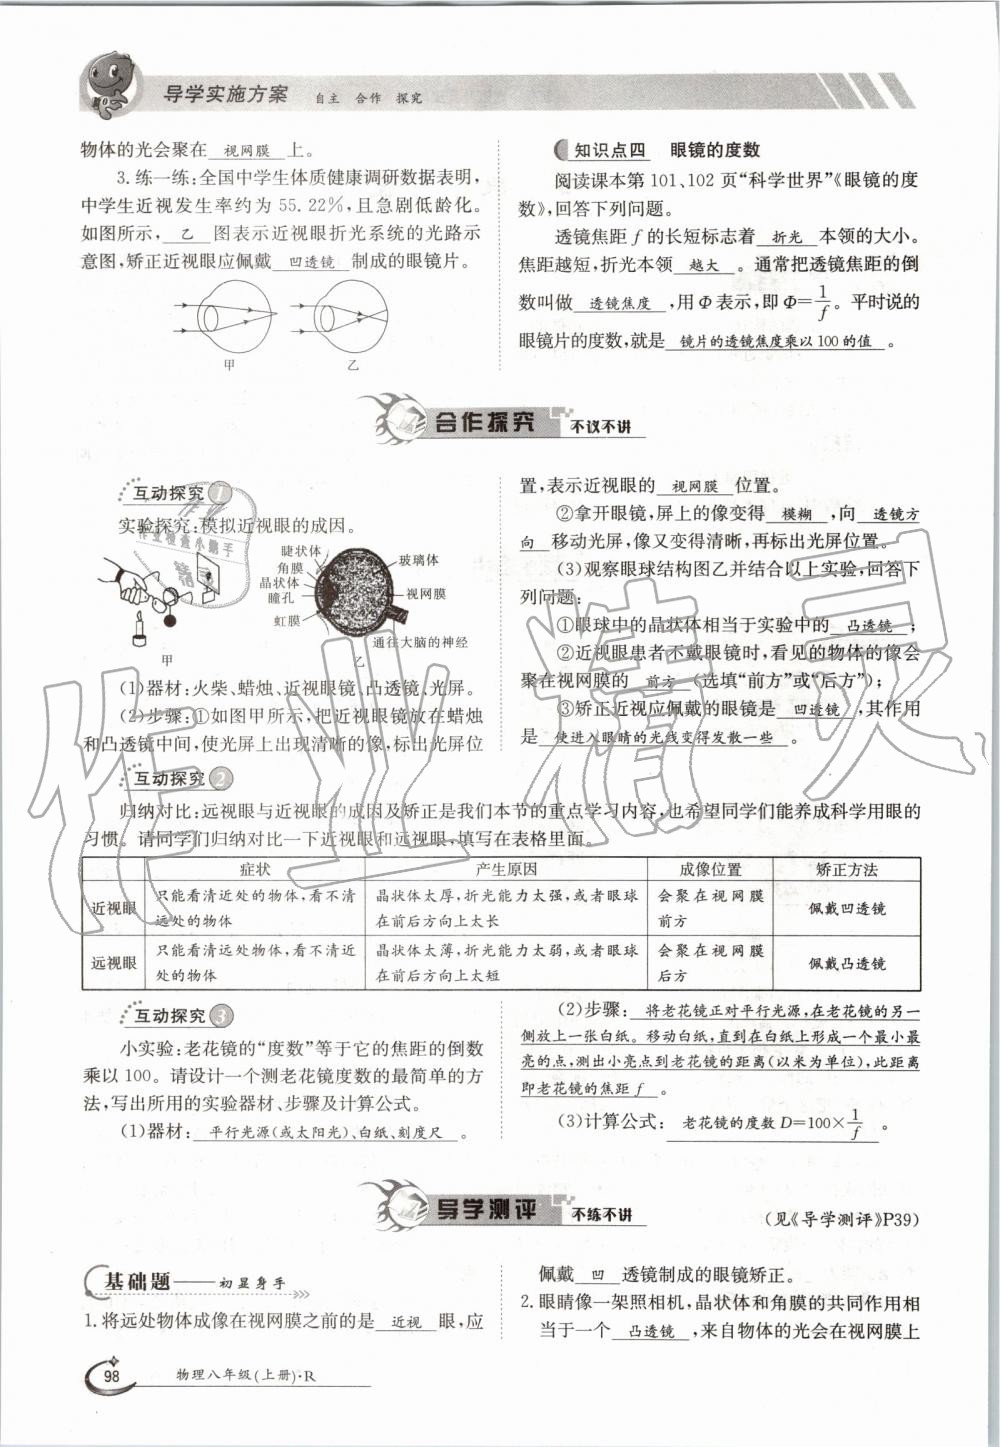 导学实施方案 自主 合作 探究
物体的光会聚在 视网膜 上。
3. 练一练:全国中学生体质健康调研数据表明,
中学生近视发生率约为 55.22%,且急剧低龄化。
如图所示, 乙 图表示近视眼折光系统的光路示
意图,矫正近视眼应佩戴 凹透镜 制成的眼镜片。
甲 乙
知识点四 眼镜的度数
阅读课本第 101、102 页“科学世界”《眼镜的度
数》,回答下列问题。
透镜焦距 f 的长短标志着 折光 本领的大小。
焦距越短,折光本领 越大 。通常把透镜焦距的倒
数叫做 透镜焦度 ,用 Φ 表示,即 Φ=1/f。平时说的
眼镜片的度数,就是 镜片的透镜焦度乘以 100 的值 。
合作探究 不议不讲
互动探究 1
实验探究:模拟近视眼的成因。
睫状体
角膜
晶状体
瞳孔
虹膜
玻璃体
视网膜
通往大脑的神经
甲 乙
(1)器材:火柴、蜡烛、近视眼镜、凸透镜、光屏。
(2)步骤:①如图甲所示,把近视眼镜放在蜡烛
和凸透镜中间,使光屏上出现清晰的像,标出光屏位
置,表示近视眼的 视网膜 位置。
②拿开眼镜,屏上的像变得 模糊 ,向 透镜方
向 移动光屏,像又变得清晰,再标出光屏位置。
(3)观察眼球结构图乙并结合以上实验,回答下
列问题:
①眼球中的晶状体相当于实验中的 凸透镜 ;
②近视眼患者不戴眼镜时,看见的物体的像会
聚在视网膜的 前方 (选填“前方”或“后方”);
③矫正近视应佩戴的眼镜是 凹透镜 ,其作用
是 使进入眼睛的光线变得发散一些 。
互动探究 2
归纳对比:远视眼与近视眼的成因及矫正是我们本节的重点学习内容,也希望同学们能养成科学用眼的
习惯。请同学们归纳对比一下近视眼和远视眼,填写在表格里面。
症状 产生原因 成像位置 矫正方法
近视眼 只能看清近处的物体,看不清远处的物体 晶状体太厚,折光能力太强,或者眼球在前后方向上太长 会聚在视网膜前方 佩戴凹透镜
远视眼 只能看清远处物体,看不清近处的物体 晶状体太薄,折光能力太弱,或者眼球在前后方向上太短 会聚在视网膜后方 佩戴凸透镜
互动探究 3
小实验:老花镜的“度数”等于它的焦距的倒数
乘以 100。请设计一个测老花镜度数的最简单的方
法,写出所用的实验器材、步骤及计算公式。
(1)器材: 平行光源(或太阳光)、白纸、刻度尺 。
(2)步骤: 将老花镜正对平行光源,在老花镜的另一
侧放上一张白纸。移动白纸,直到在白纸上形成一个最小最
亮的点,测出小亮点到老花镜的距离(以米为单位),此距离
即老花镜的焦距 f 。
(3)计算公式: 老花镜的度数 D=100×1/f 。
导学测评 不练不讲
(见《导学测评》P39)
基础题——初显身手
1. 将远处物体成像在视网膜之前的是 近视 眼,应
佩戴 凹 透镜制成的眼镜矫正。
2. 眼睛像一架照相机,晶状体和角膜的共同作用相
当于一个 凸透镜 ,来自物体的光会在视网膜上
98 物理八年级(上册)·R
作业精灵
作业检查小助手